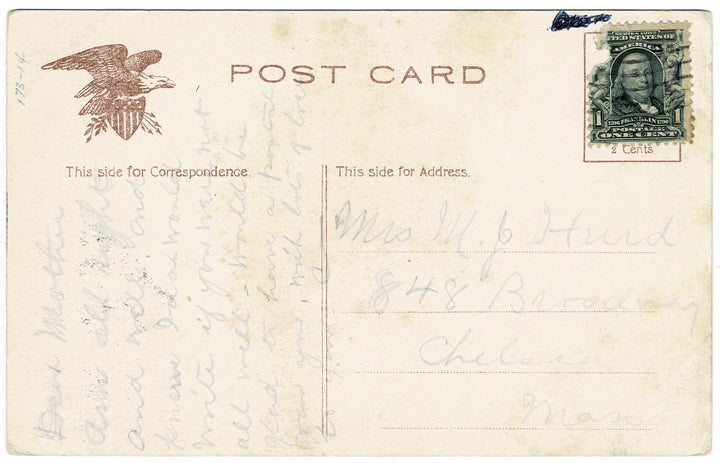 173-14
POST CARD
SERIES 1902
UNITED STATES OF
AMERICA
1 FRANKLIN 1
1706 1790
POSTAGE
ONE CENT
2 Cents
This side for Correspondence.
This side for Address.
Dear Mother
am all right
and well, and
knew I da would
write if you was not
all well - would be
glad to have a postal
from you, with lots of love
to you
Mrs M. J. Hurd
848 Broadway
Chelsea
Mass